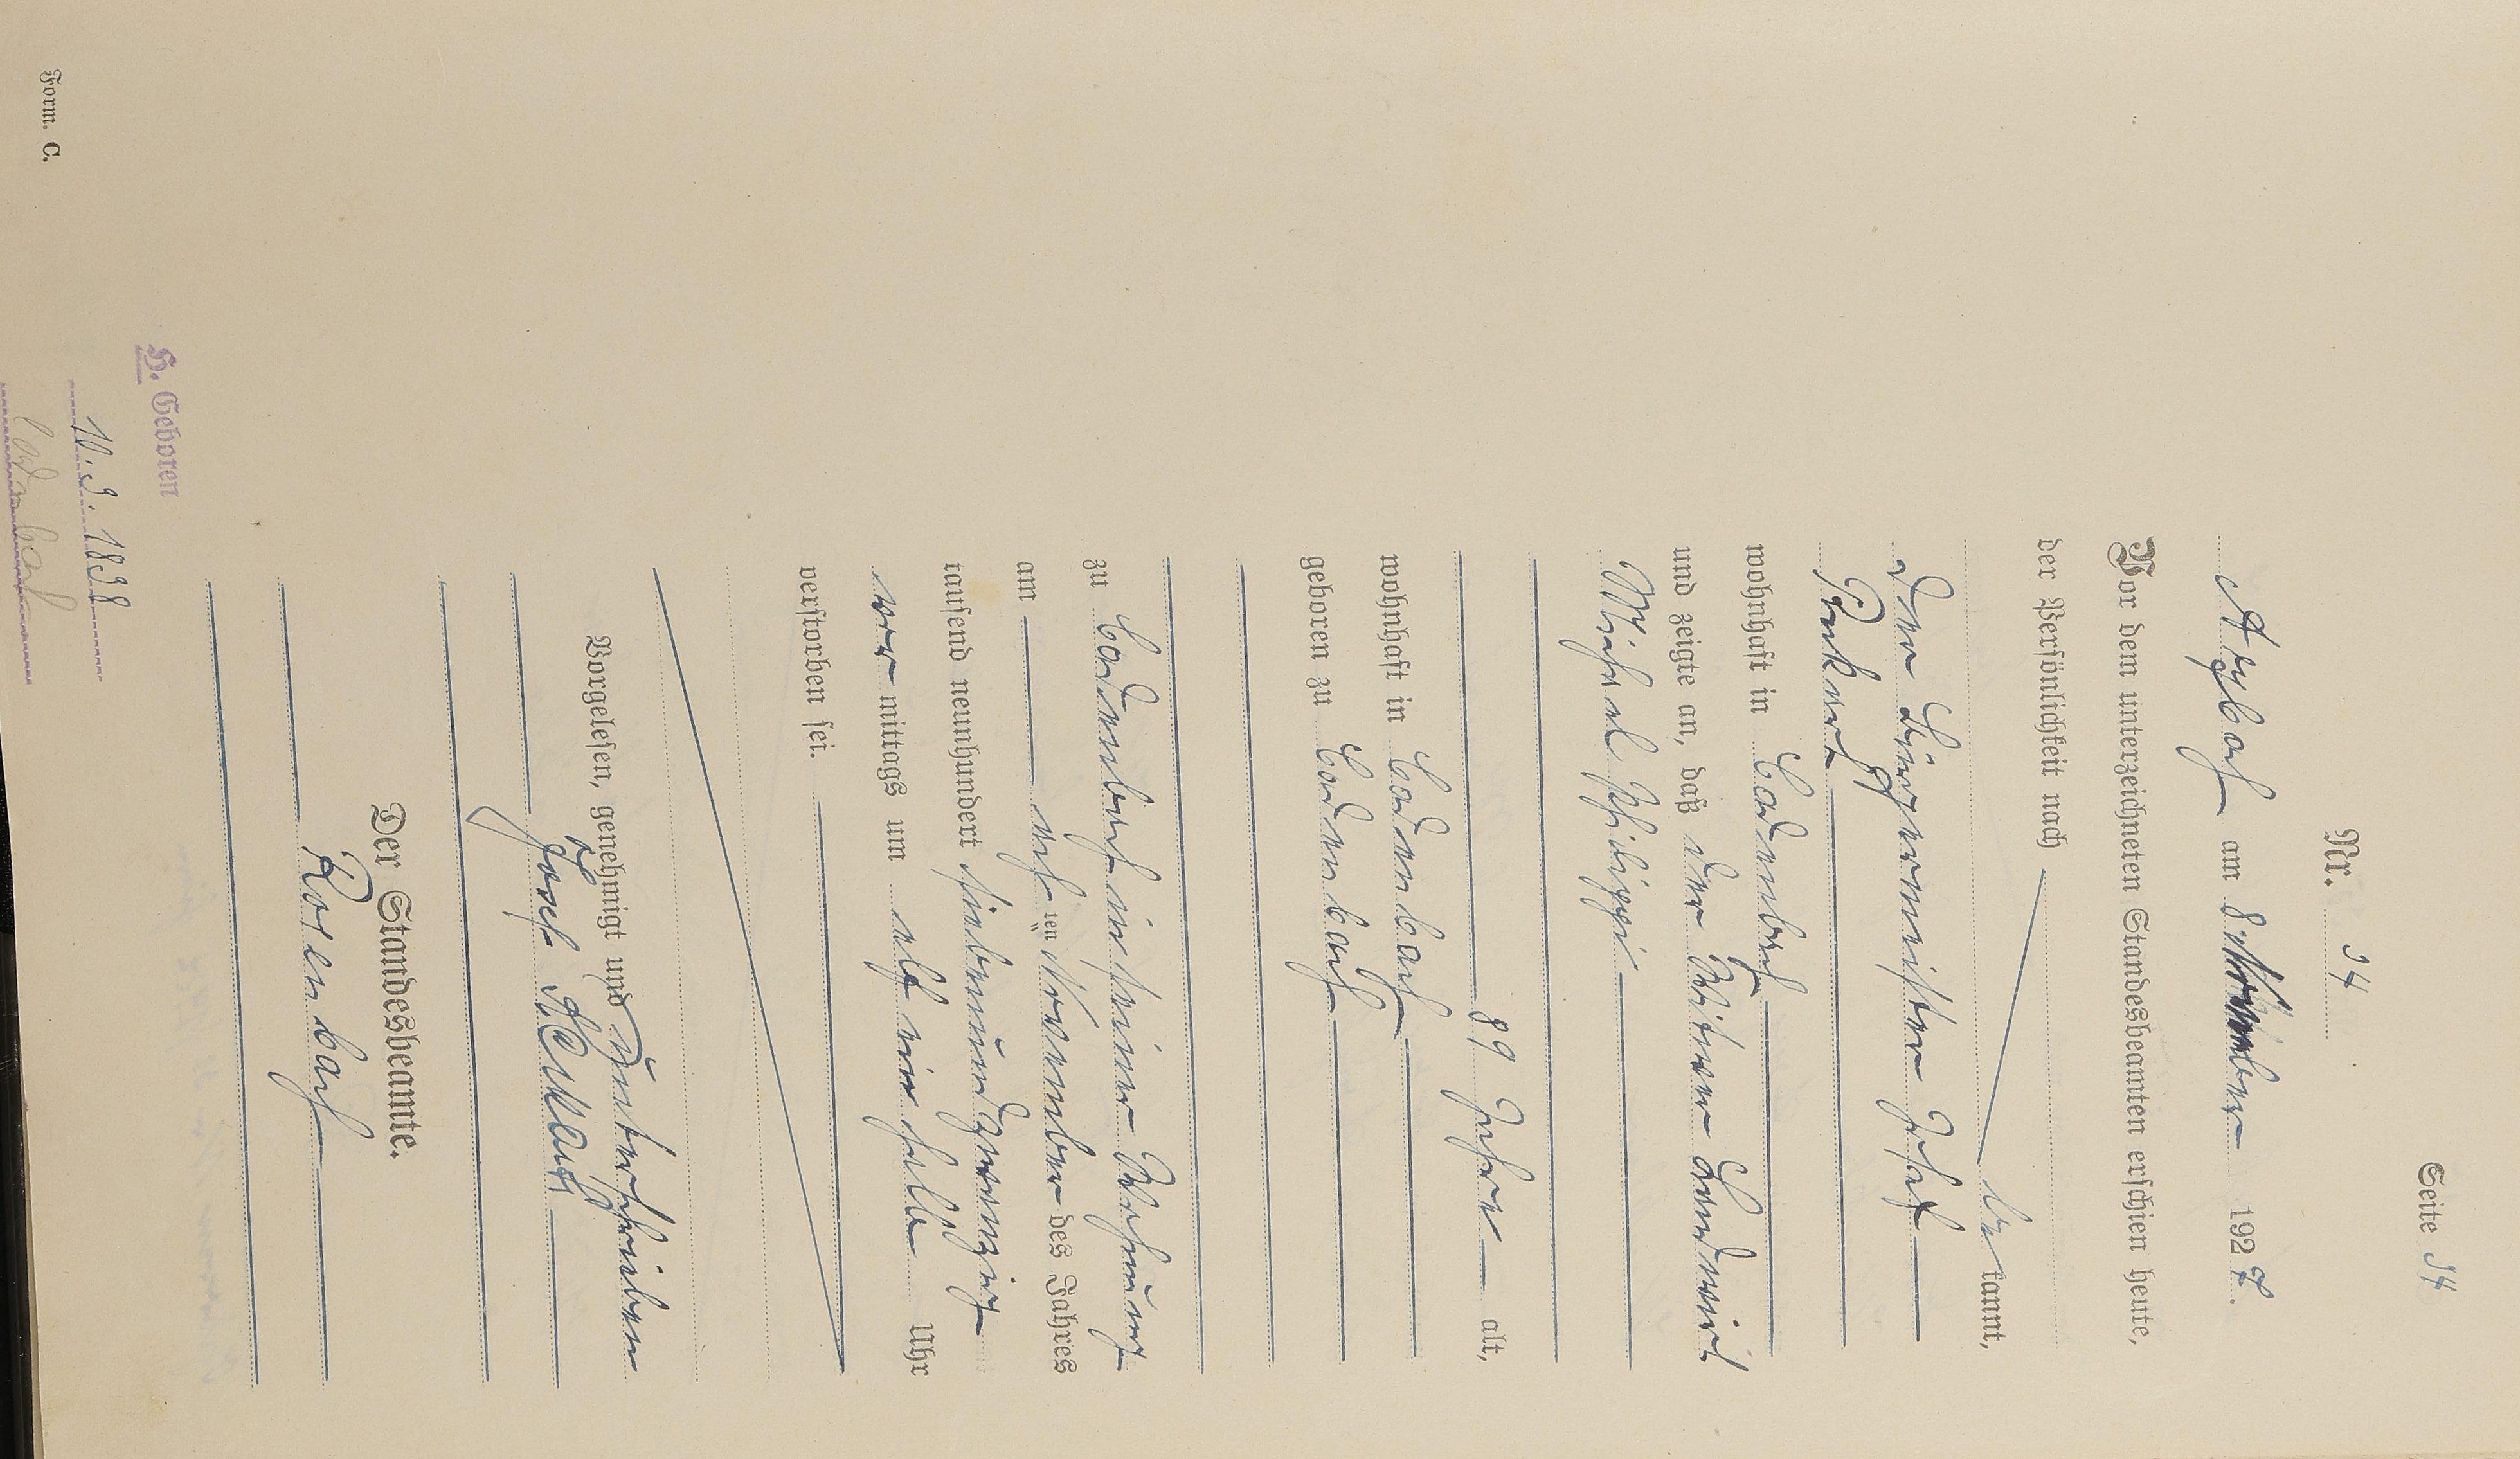 Seite 34
Nr. 34
Asbach am 8. November 1927.
Vor dem unterzeichneten Standesbeamten erschien heute,
der Persönlichkeit nach
be kannt,
der Bürgermeister Josef
wohnhaft in Cadenbach
und zeigte an, daß der Witwer Landwirt
Michael Philippi
89 Jahre alt,
wohnhaft in Cadenbach
geboren zu Cadenbach
zu Cadenbach in seiner Wohnung
am acht ten November des Jahres
tausend neunhundert siebenundzwanzig
vor mittags um elf ein halb Uhr
verstorben sei.
Vorgelesen, genehmigt und unterschrieben
Josef
Der Standesbeamte.
Rosenbach
H. Geboren
10.3.1838
Cadenbach
Form. C.